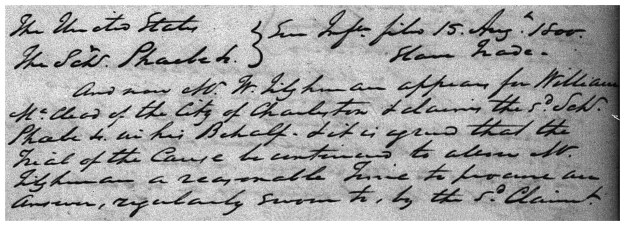 The United States } See Infn. filed 15. Augt. 1800.
The Schr. Phoebe &c. } Slave Trade.
And now Mr. W. Tilghman appears for William
McClead of the City of Charleston & claims the sd. Schr.
Phoebe &c. in his Behalf. & it is agreed that the
Trial of the Cause be continued to allow Mr.
Tilghman a reasonable Time to procure an
Answer, regularly sworn to, by the sd. Claimt.